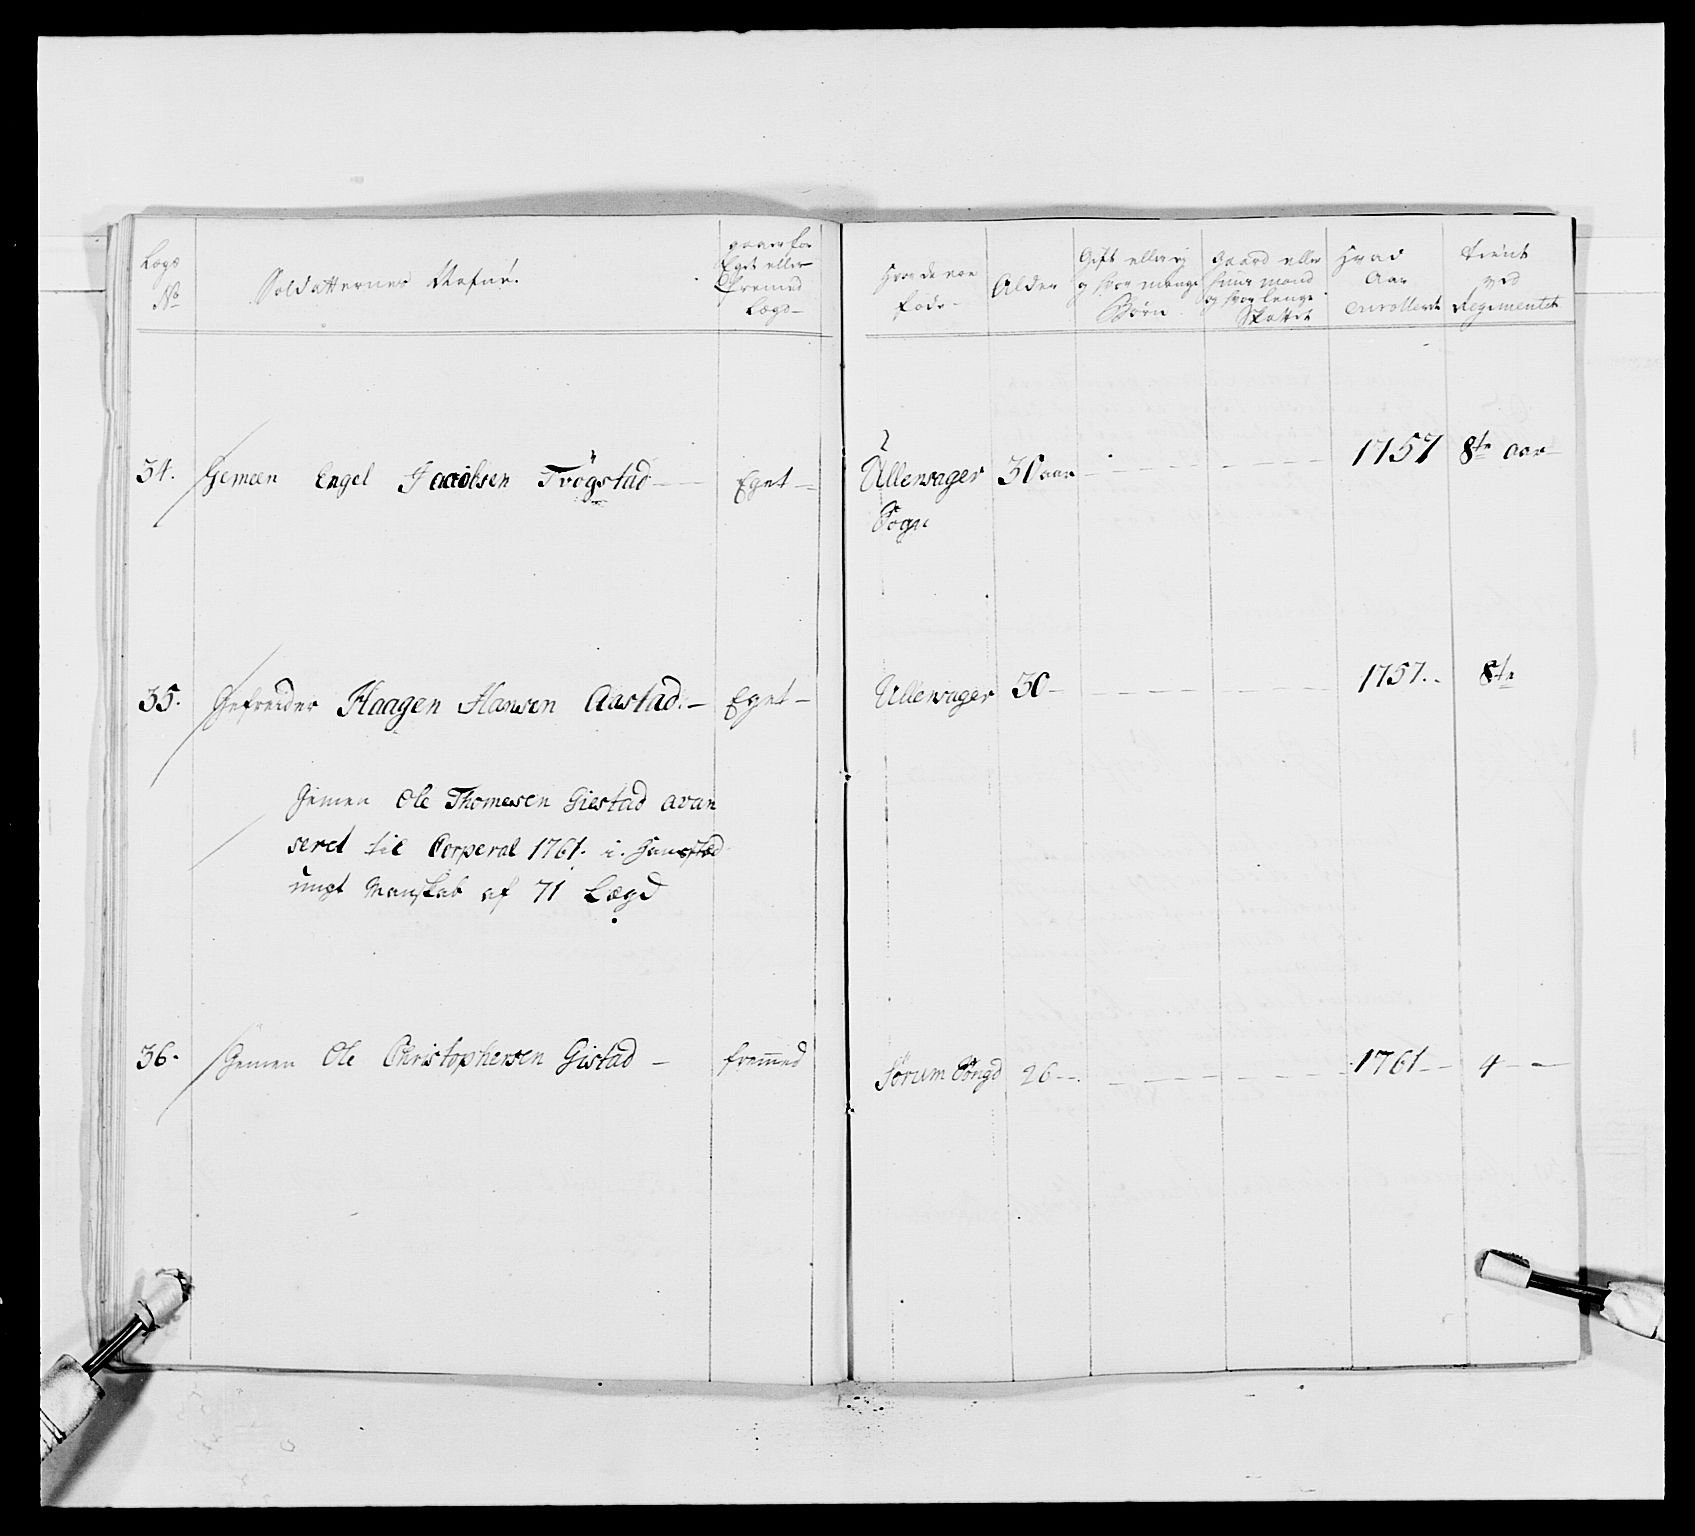 Lægs No
Soldatternes Nafne.
gaaer for Eget eller fremed Lægd
Hvor de ere føde
Alder
Gift eller ej og hvor mange Børn
Gaard eller Huus mand og hvor lenge Skattet
Hvad Aar Enrollerede
Tient ved Regimentet
34. Gemeen Engel Jacobsen Trøgstad Eget Ullensager 30 aar 1757 8te aar
Sogn
35. Gefreider Haagen Hansen Aastad. Eget Ullensager 30 1757. 8te
Gemen Ole Thomesen Giestad avan
seret til Corperal 1761. i.
ungt Manskab af 71 Lægd
36. Gemen Ole Christophersen Gistad fremed Sørum Songd 26 1761 4